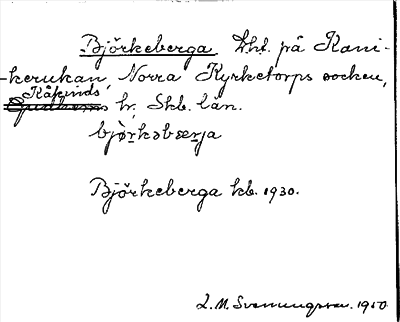 Björkeberga lht. på Kani-
-kerukan, Norra Kyrketorps socken,
Kåkinds
Gudhems hr, Skb. län.
bjø̣rkəbærja
Björkeberga kb. 1930.
S. M. Svenungsson. 1950